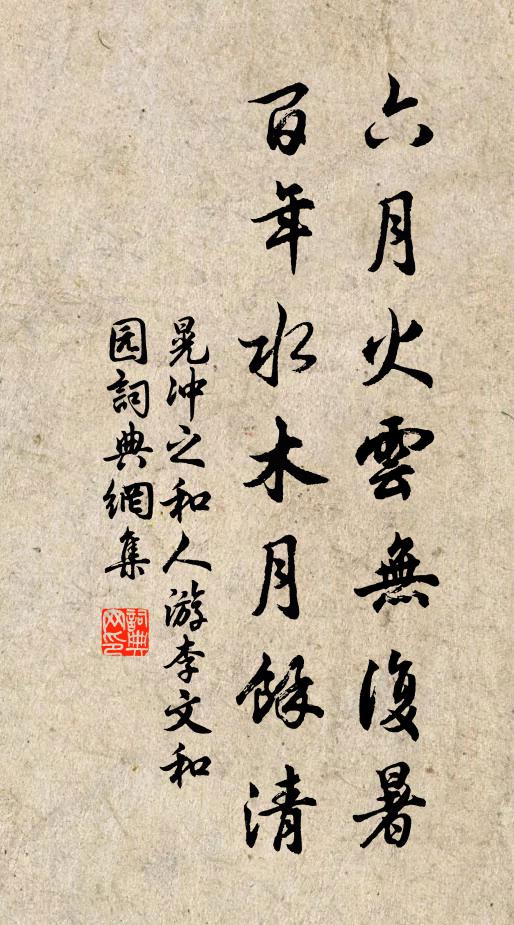 六月火雲無復暑
百年水木月餘清
晁沖之和人游李文和
园詞典網集
詞典网印